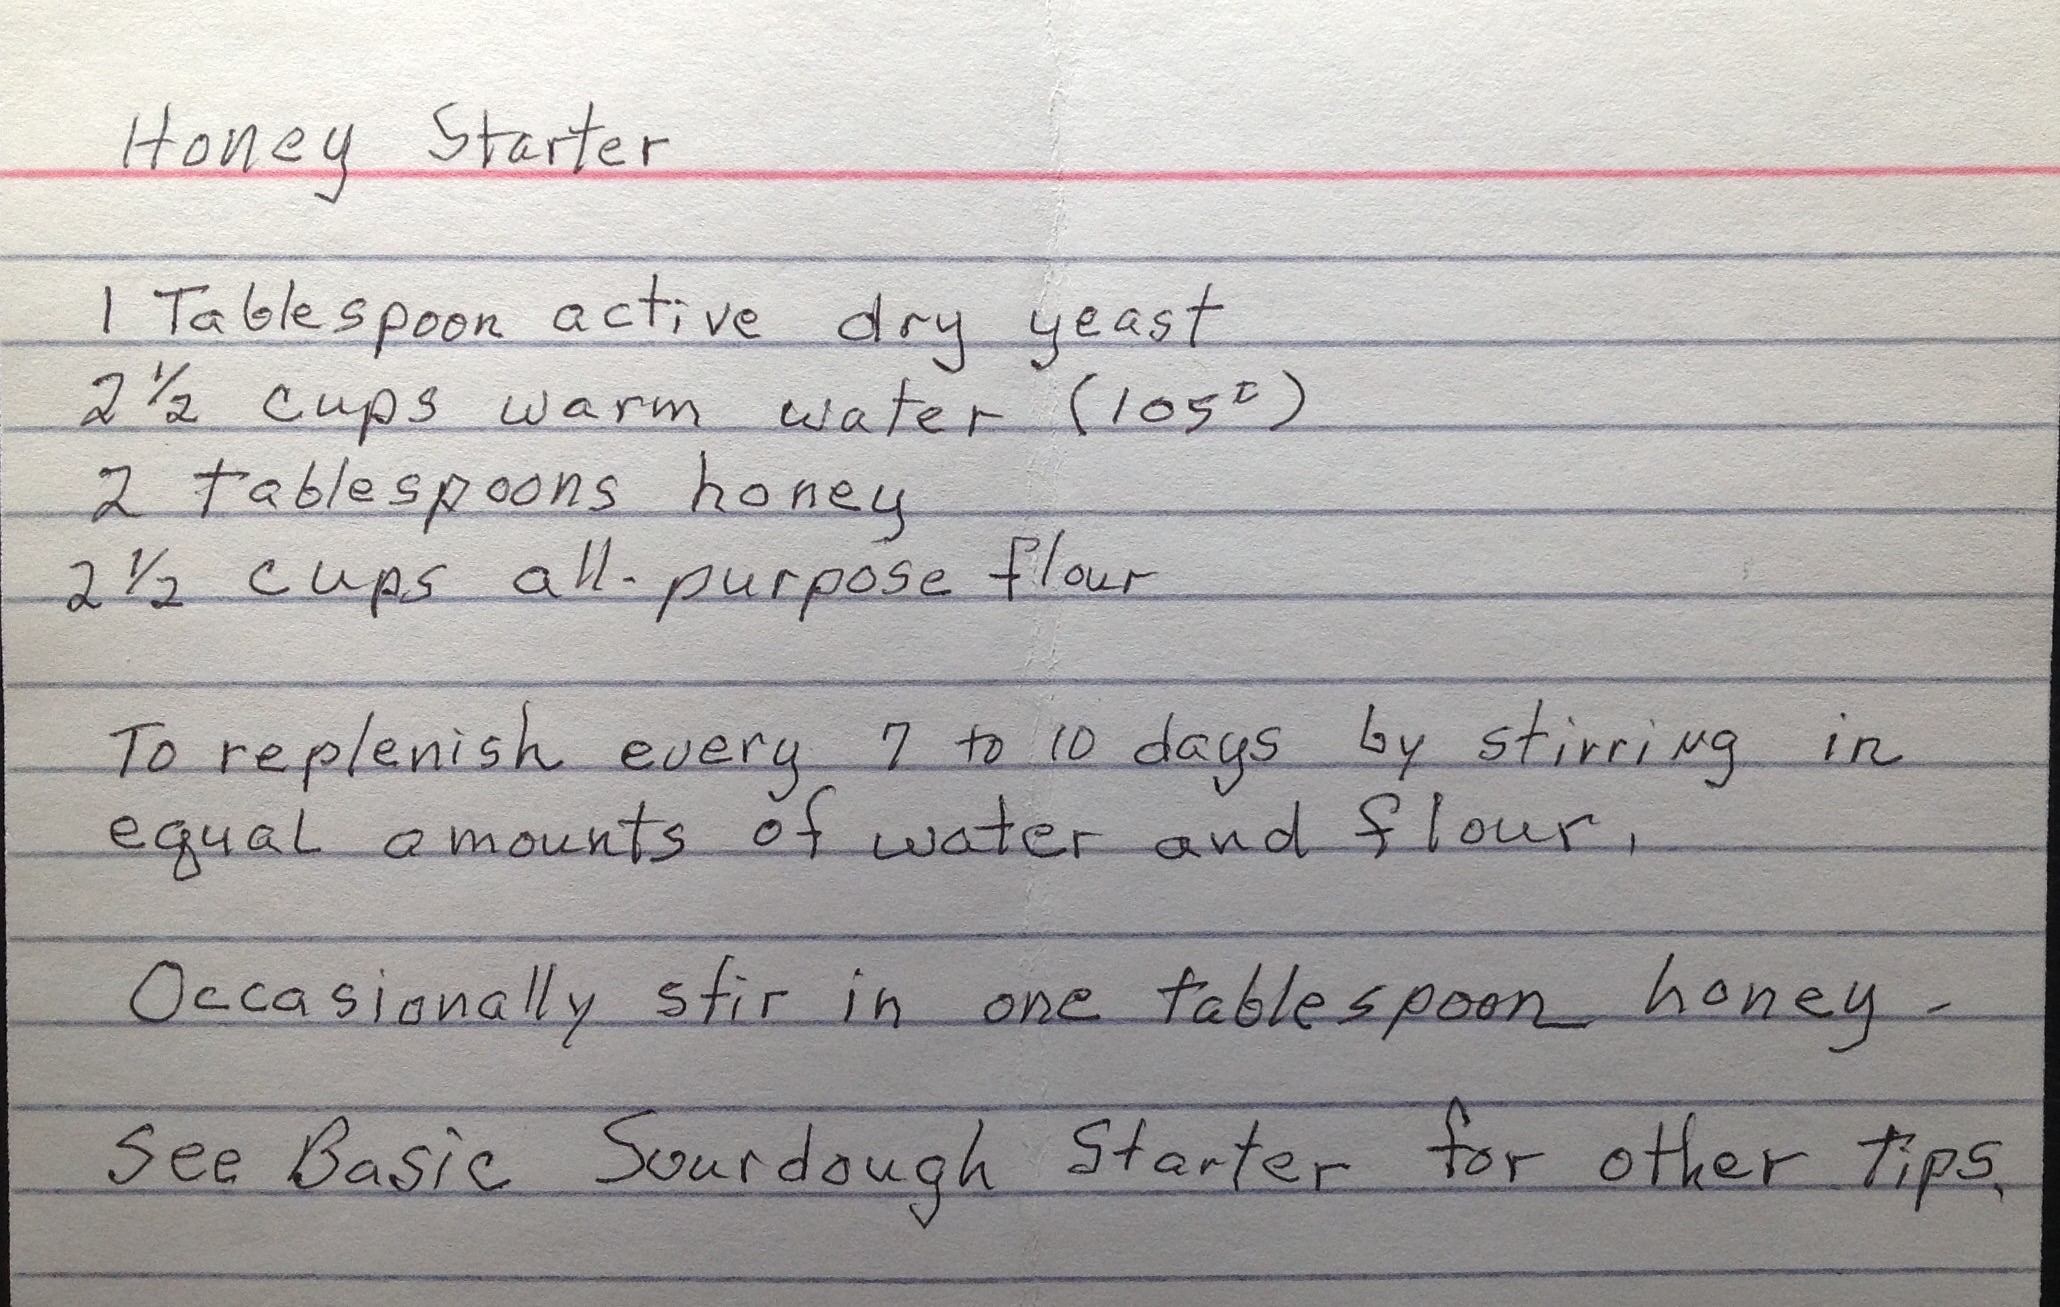 Honey Starter
1 Tablespoon active dry yeast
2 1/2 cups warm water (105°)
2 tablespoons honey
2 1/2 cups all-purpose flour
To replenish every 7 to 10 days by stirring in
equal amounts of water and flour.
Occasionally stir in one tablespoon honey.
See Basic Sourdough Starter for other tips.